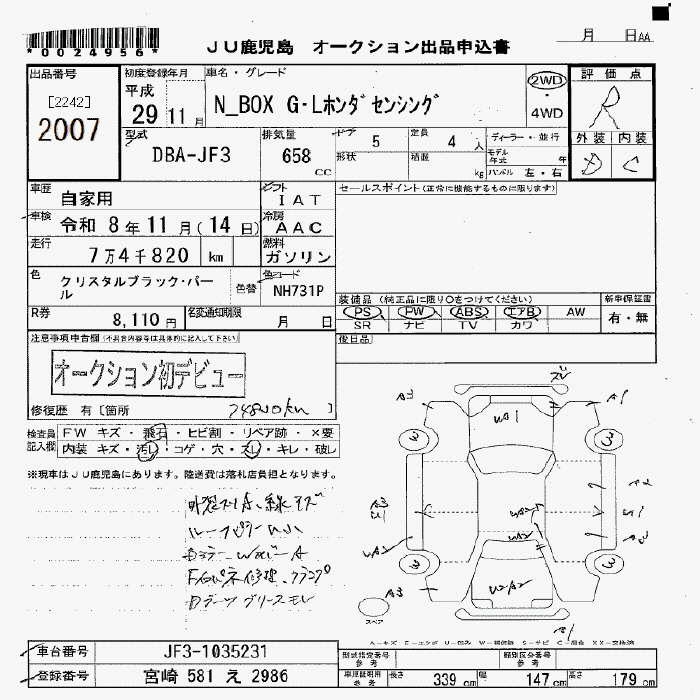 *0024956*
JU鹿児島 オークション出品申込書
月 日AA
出品番号
[2242]
2007
初度登録年月
平成
29 11 月
車名・グレード
N_BOX G・Lホンダセンシング
2WD
・
4WD
評価点
R
外装 内装
D C
型式
DBA-JF3
排気量
658
cc
ドア 5
定員 4 人
ディーラー・並行
形状
積載 kg
モデル年式 年
ハンドル 左・右
車歴
自家用
シフト
IAT
セールスポイント(正常に機能するものに限ります)
車検
令和 8年 11月(14日)
冷房
AAC
走行
7万4千820 km
燃料
ガソリン
色
クリスタルブラック・パール
色替
色コード
NH731P
装備品(純正品に限り○をつけてください)
新車保証書
PS PW ABS エアB AW
有・無
SR ナビ TV カワ
R券
8,110 円
名変通知期限
月 日
後日品
注意事項申告欄(不具合内容等は具体的に記入して下さい)
オークション初デビュー
修復歴 有[箇所 74820km ]
検査員記入欄
FW キズ・飛石・ヒビ割・リペア跡・×要
内装 キズ・汚レ・コゲ・穴・スレ・キレ・破レ
※現車はJU鹿児島にあります。陸送費は落札店負担となります。
A3
A1
UA1
3
3
A2
3
3
A3
UA2
B1
スペア
車台番号
JF3-1035231
登録番号
宮崎 581 え 2986
型式指定番号
参考
類別区分番号
参考
車庫証明用
参考
長さ 339 cm
幅 147 cm
高さ 179 cm